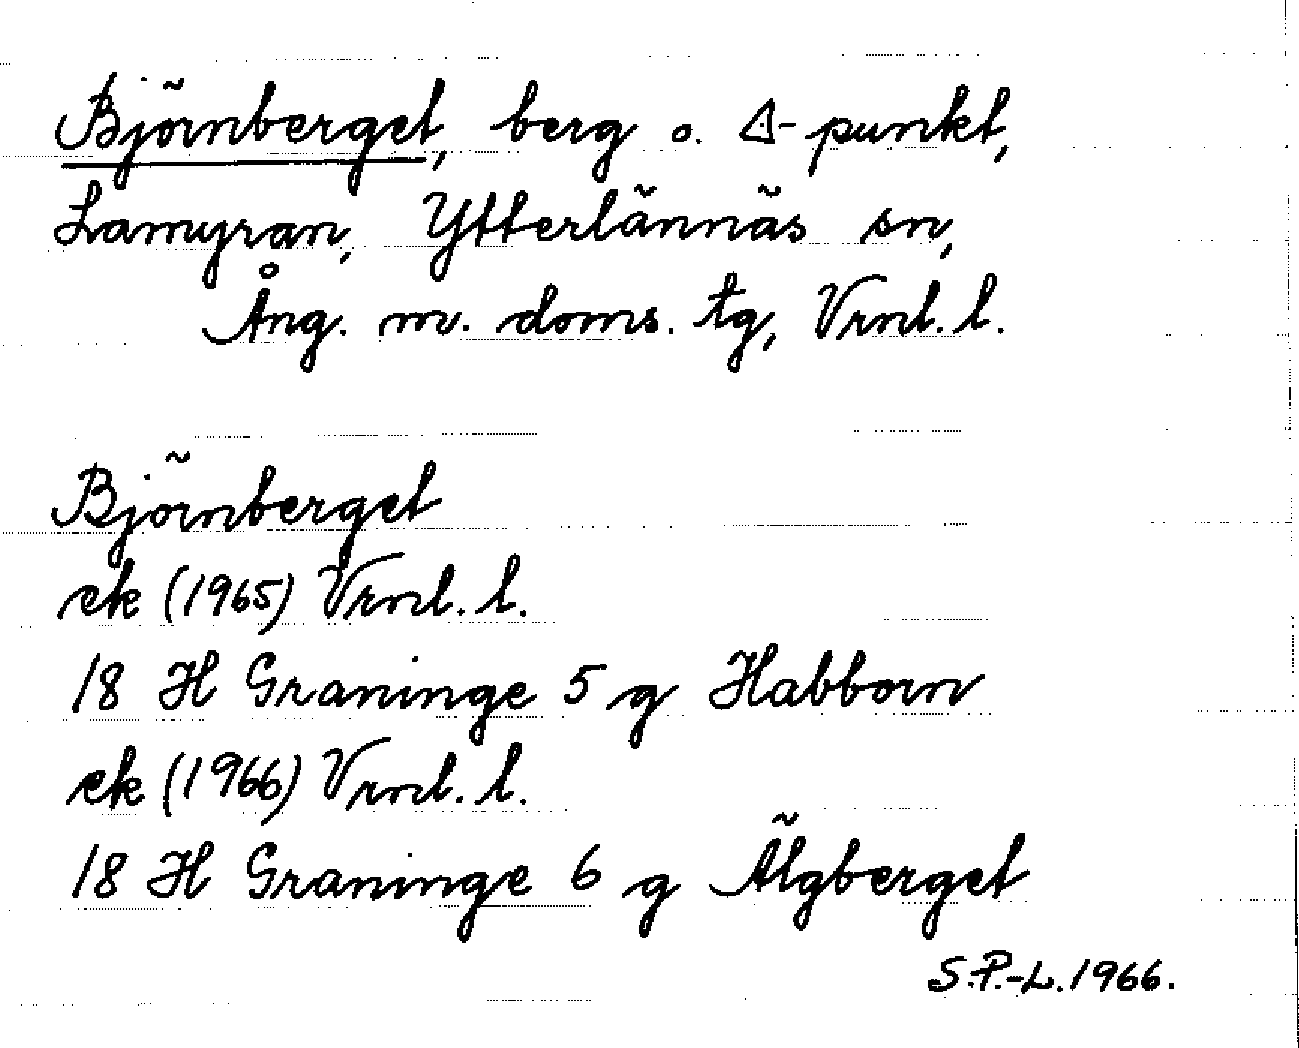 Björnberget, berg o. △-punkt,
Lamyran, Ytterlännäs sn,
Ång. m. doms. tg, Vrnl. l.
Björnberget
ek (1965) Vrnl. l.
18 H Graninge 5 g Habborn
ek (1966) Vrnl. l.
18 H Graninge 6 g Älgberget
S.P.-L. 1966.